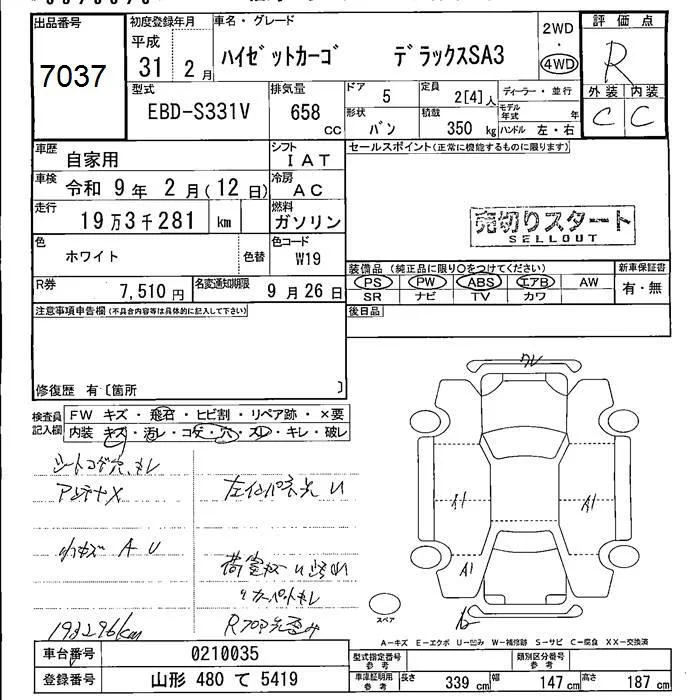 出品番号
7037
初度登録年月
平成
31 2月
車名・グレード
ハイゼットカーゴ デラックスSA3
2WD
4WD
評価点
R
外装 内装
C C
型式
EBD-S331V
排気量
658 cc
ドア
5
定員
2[4]人
ディーラー・並行
形状
バン
積載
350 kg
モデル年式 年
ハンドル 左・右
車歴
自家用
シフト
IAT
車検
令和 9年 2月(12日)
冷房
AC
走行
19万3千281 km
燃料
ガソリン
色
ホワイト
色替
色コード
W19
R券
7,510円
名変通知期限
9月26日
セールスポイント(正常に機能するものに限ります)
売切りスタート
SELLOUT
装備品(純正品に限り○をつけてください)
新車保証書
PS PW ABS エアB AW
SR ナビ TV カワ
有・無
後日品
注意事項申告欄(不具合内容等は具体的に記入して下さい)
修復歴 有〔箇所 〕
検査員記入欄
FW キズ・飛石・ヒビ割・リペア跡・×要
内装 キズ・汚レ・コゲ・穴・スレ・キレ・破レ
シートコゲ穴、キレ
アンテナX
A U
193296km
ワレ
A1
A1
スペア
A-キズ E-エクボ U-凹み W-補修跡 S-サビ C-腐食 XX-交換済
車台番号
0210035
登録番号
山形 480 て 5419
型式指定番号
参考
類別区分番号
参考
車庫証明用
参考
長さ
339 cm
幅
147 cm
高さ
187 cm